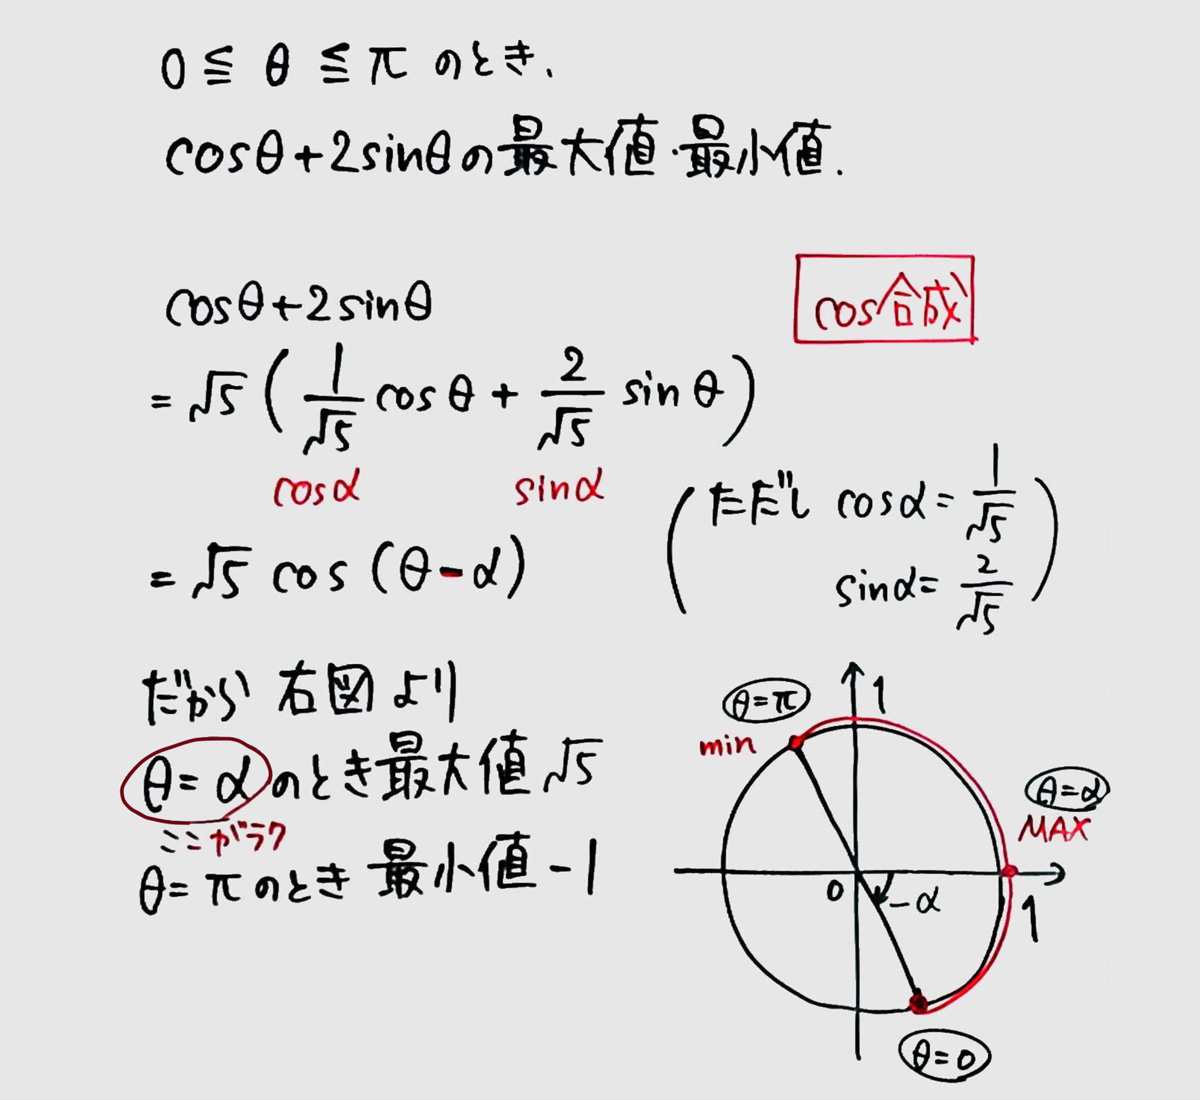 0 ≦ θ ≦ π のとき、
cosθ+2sinθの最大値・最小値.
cos合成
cosθ+2sinθ
= √5 ( 1/√5 cosθ + 2/√5 sinθ )
cosα sinα
= √5 cos (θ-α)
(ただし cosα= 1/√5
sinα= 2/√5 )
だから 右図より
θ=αのとき最大値 √5
ここがラク
θ=πのとき 最小値 -1
θ=π
1
min
θ=α
MAX
0
-α
1
θ=0